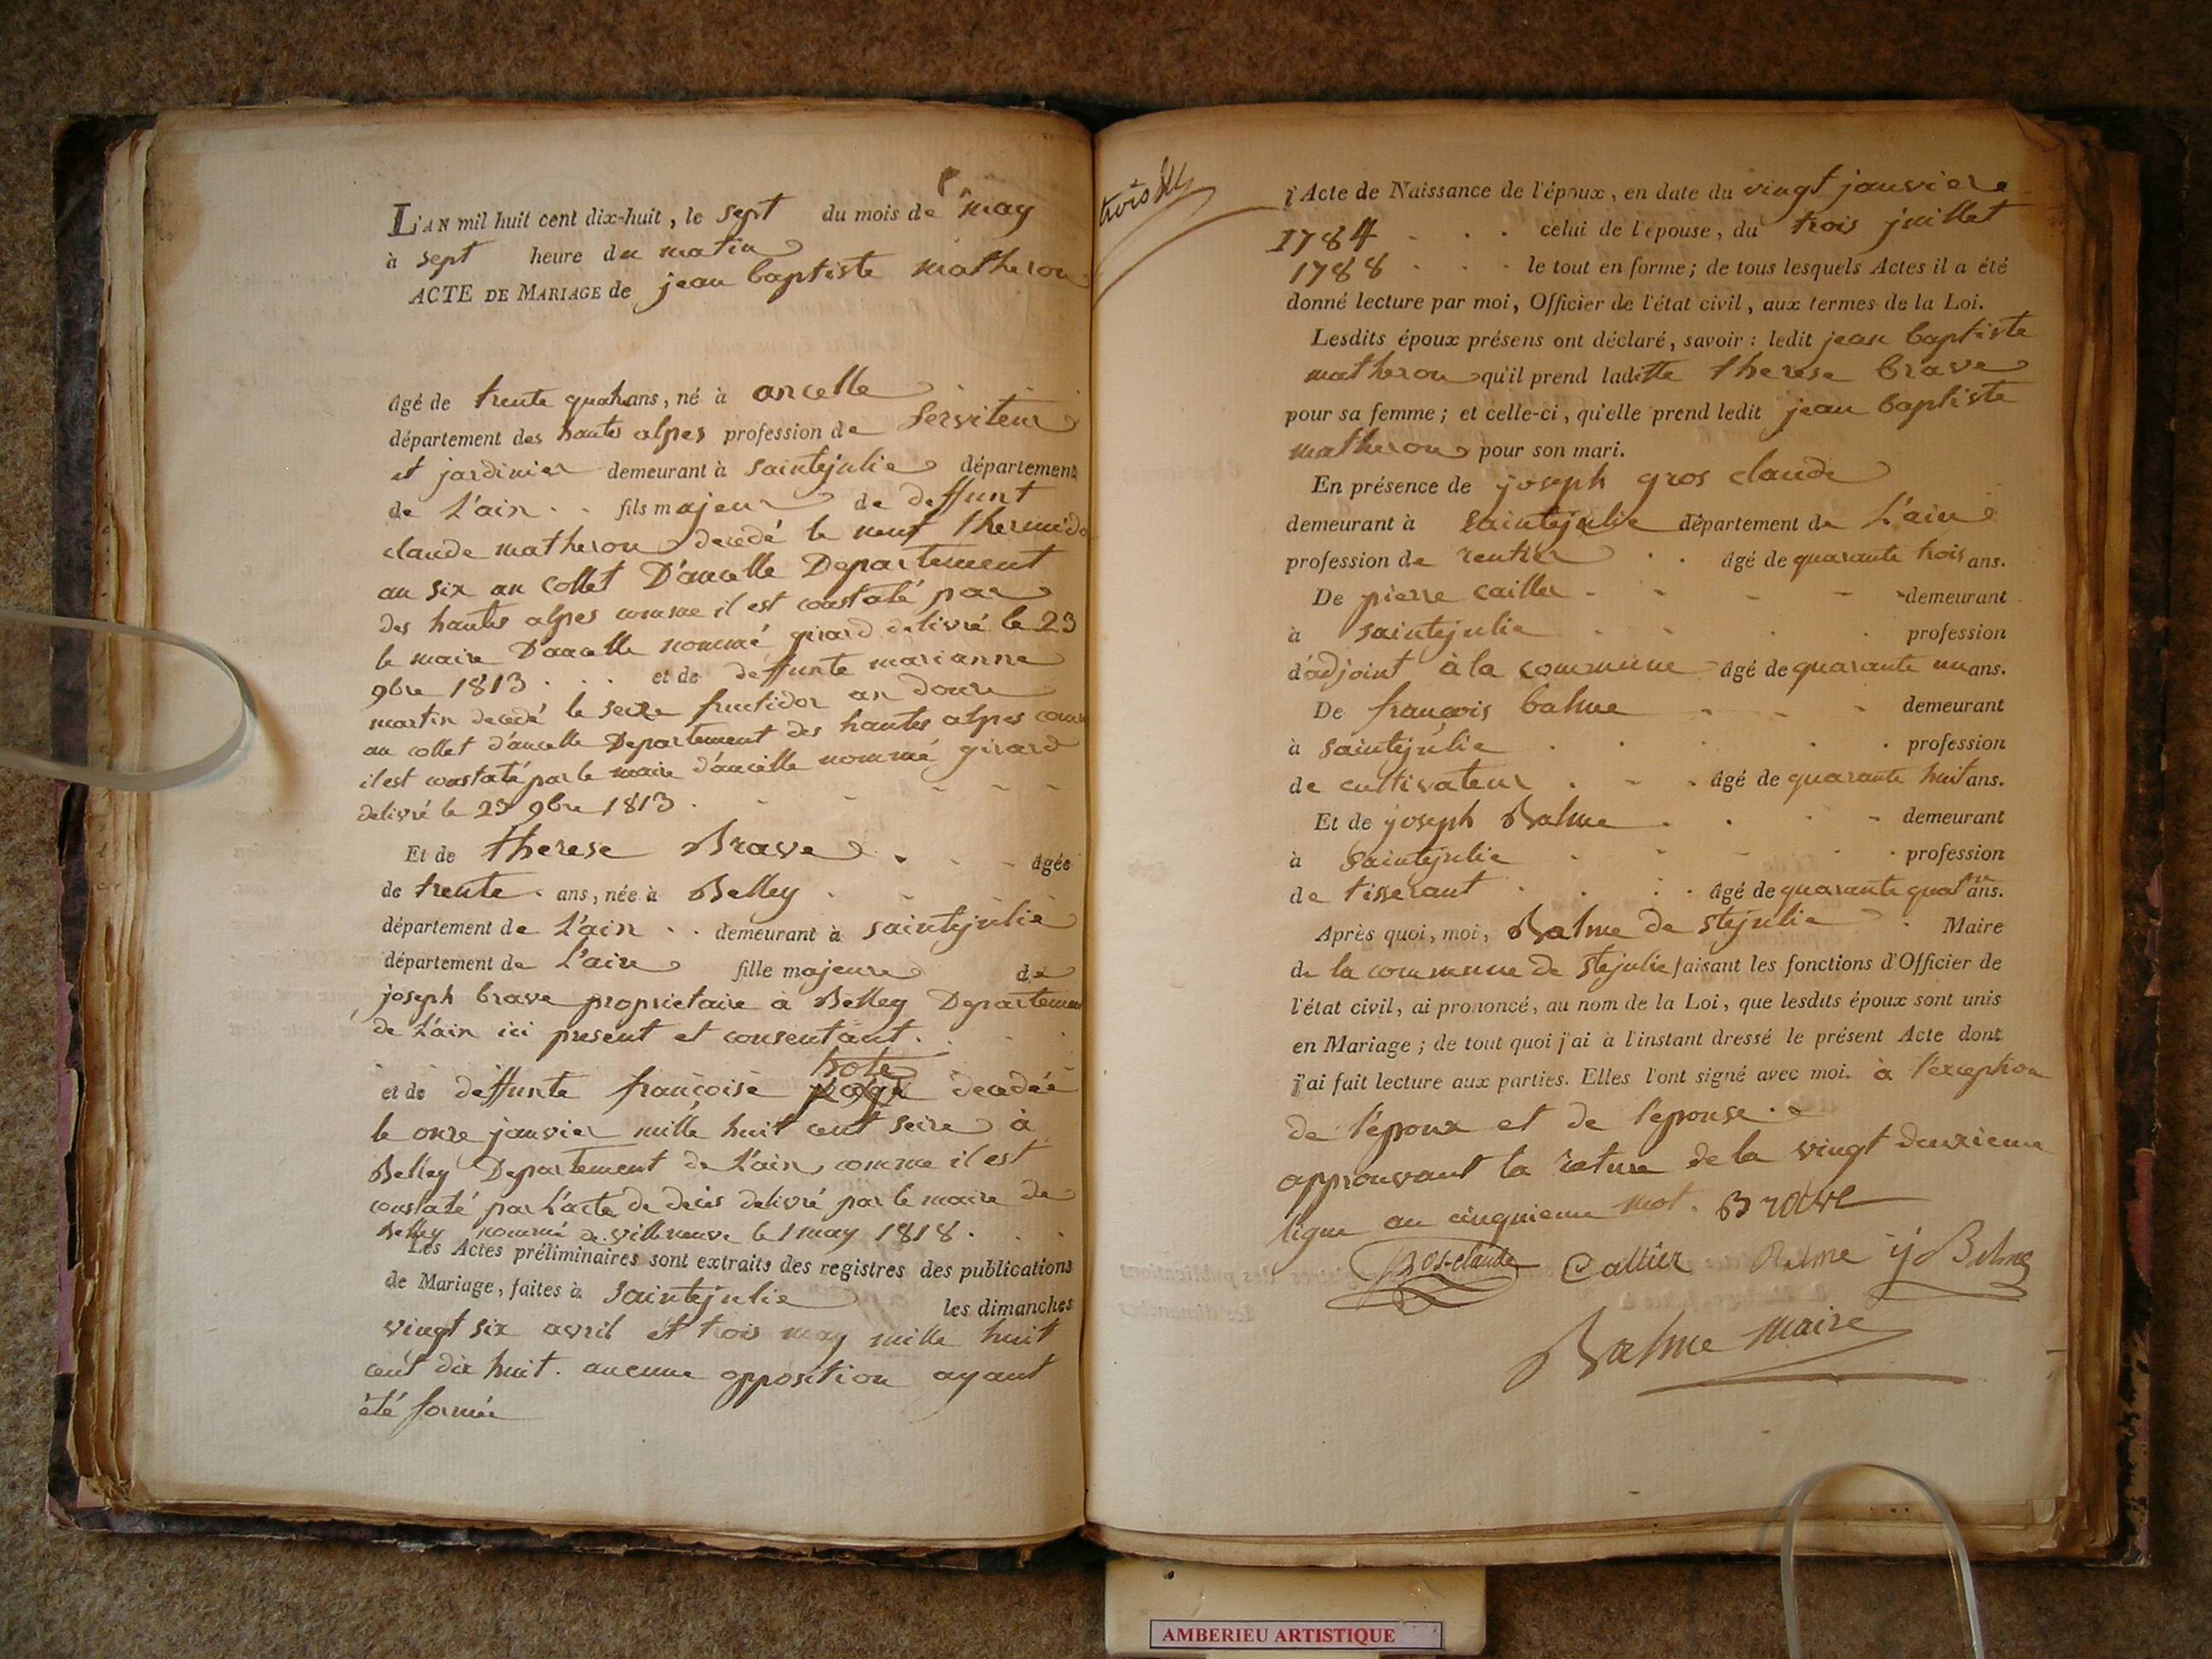 L'AN mil huit cent dix-huit, le sept du mois de may
à sept heure du matin
ACTE DE MARIAGE de jean baptiste matheron
âgé de trente quatr ans, né à ancelle
département des hautes alpes profession de serviteur
et jardinier demeurant à saintejulie département
de L'ain . . fils majeur de deffunt
claude matheron decedé le neuf thermido
an six au collet D'ancelle Departement
des hautes alpes comme il est constaté par
le maire D'ancelle nommé girard delivré le 23
9bre 1813 . . . et de deffunte marianne
martin decedé le seize fructidor an douze
au collet d'ancelle Departement des hautes alpes comme
il est constaté par le maire d'ancelle nommé girard
delivré le 23 9bre 1813 . - - - - -
Et de therese Brave . - - âgée
de trente . ans, née à Belley . -
département de L'ain . . demeurant à saintejulie
département de L'ain fille majeure de
joseph brave proprietaire à Belley Departemen
de L'ain ici present et consentant . . . .
hote
et de deffunte françoise decedée
le onze janvier mille huit cent seize à
Belley Departement de L'ain comme il est
constaté par L'acte de décès delivré par le maire de
Belley nommé de villeneuve le 1 may 1818 . . .
Les Actes préliminaires sont extraits des registres des publications
de Mariage, faites à saintejulie les dimanches
vingt six avril et trois may mille huit
cent dix huit . aucune opposition ayant
été formée
trois
l'Acte de Naissance de l'époux, en date du vingt janviere
1784 - . . celui de l'épouse, du trois juillet
1788 - . - le tout en forme; de tous lesquels Actes il a été
donné lecture par moi, Officier de l'état civil, aux termes de la Loi.
Lesdits époux présens ont déclaré, savoir : ledit jean baptiste
matheron qu'il prend laditte therese brave
pour sa femme; et celle-ci, qu'elle prend ledit jean baptiste
matheron pour son mari.
En présence de joseph gros claude
demeurant à saintejulie département de L'ain
profession de rentier . . âgé de quarante trois ans.
De pierre caillier - - - - demeurant
à saintejulie . - . . profession
d'adjoint à la commune âgé de quarante un ans.
De françois balme - - - demeurant
à saintejulie . . . . . profession
de cultivateur . - . âgé de quarante huit ans.
Et de joseph Balme . . . - demeurant
à saintejulie . - - . . profession
de tisserant . . . . âgé de quarante quatre ans.
Après quoi, moi, Balme de stejulie . Maire
de la commune de stejulie faisant les fonctions d'Officier de
l'état civil, ai prononcé, au nom de la Loi, que lesdits époux sont unis
en Mariage; de tout quoi j'ai à l'instant dressé le présent Acte dont
j'ai fait lecture aux parties. Elles l'ont signé avec moi. à l'exception
de l'époux et de l'epouse .
approuvant la rature de la vingt deuxieme
ligne au cinquieme mot . Brave
gros-claude Caillier Balme j Balme
Balme maire
AMBERIEU ARTISTIQUE